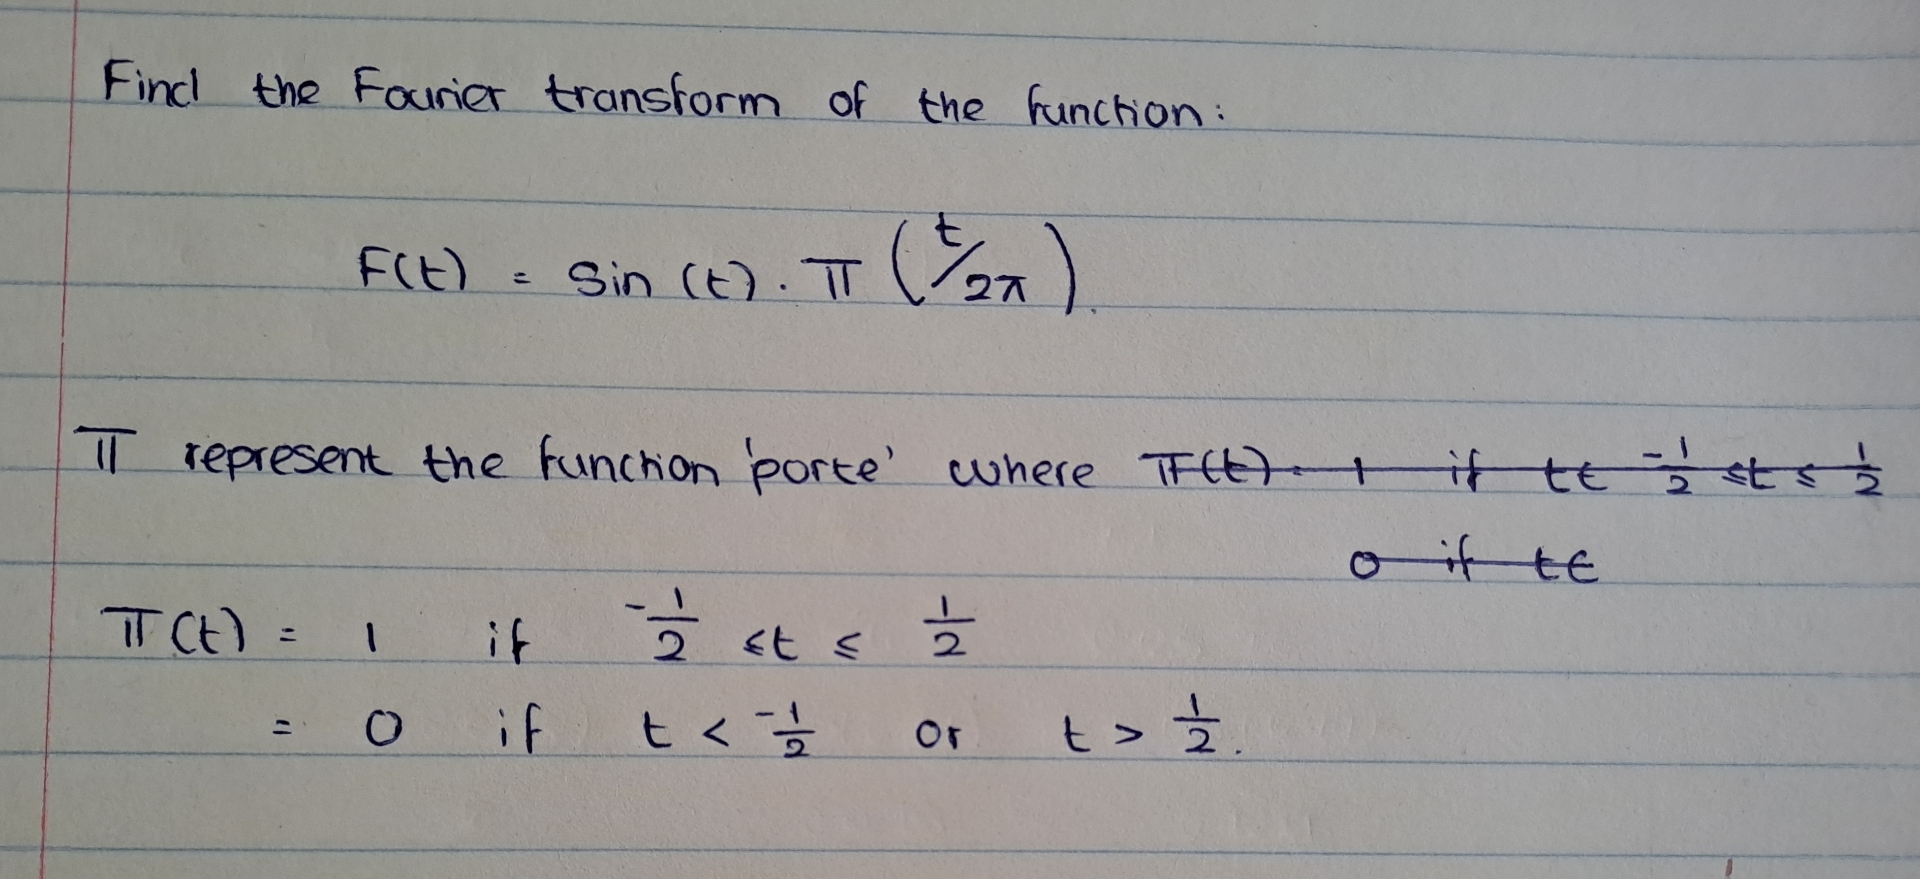 Find the Fourier transform of the function:
F(t) = Sin (t). Π (t/2π).
Π represent the function 'porte' where Π(t) = 1 if t∈ -1/2 ≤t ≤ 1/2
0 if t∈
Π(t) = 1 if -1/2 ≤t ≤ 1/2
= 0 if t < -1/2 or t > 1/2.